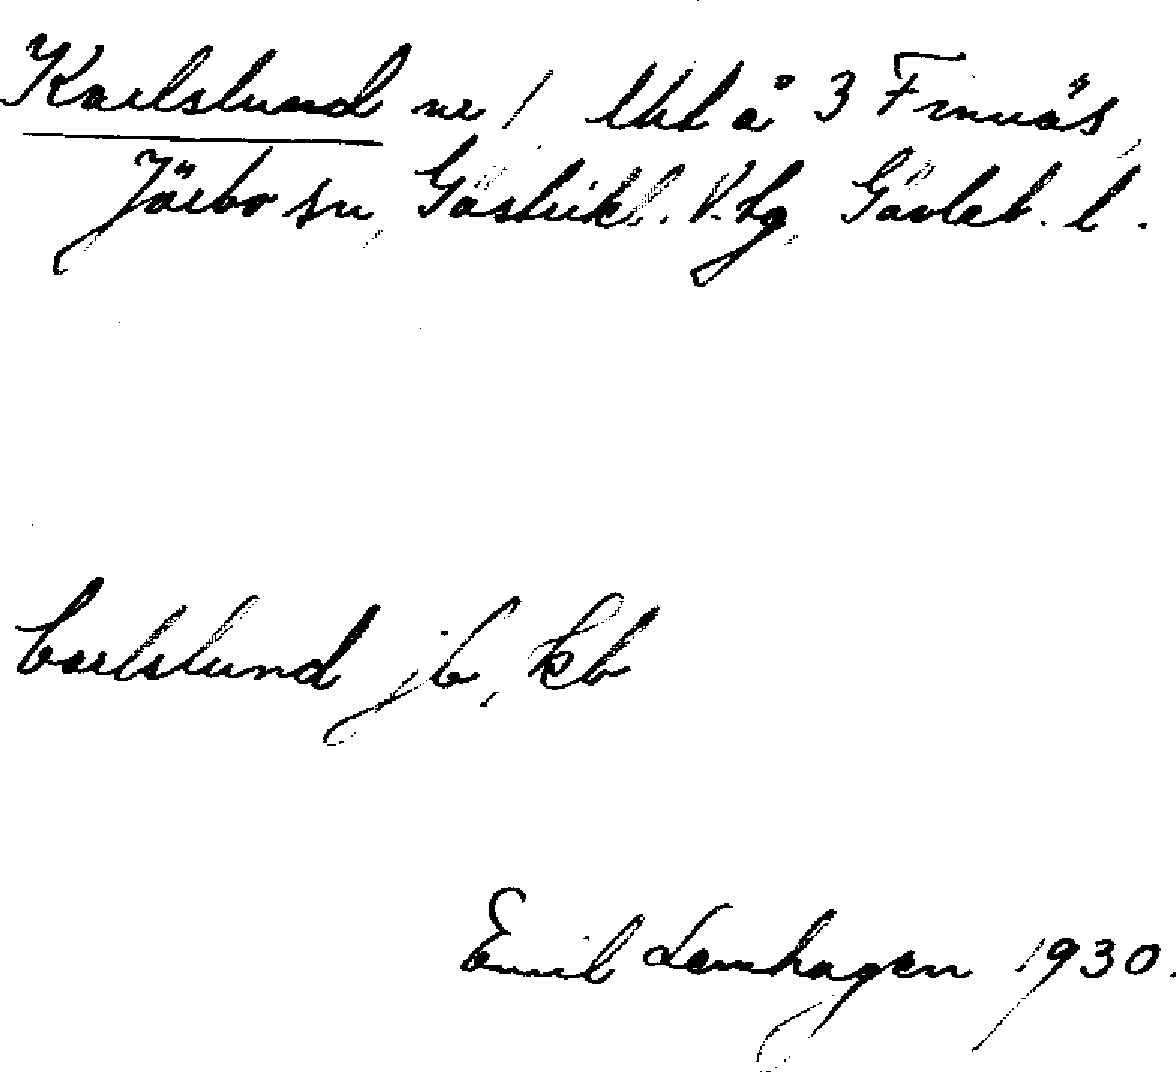 Karlslund nr 1 Utl å 3 Finnäs,
Järbo sn, Gästrikl. V. tg, Gävleb. l.
Carlslund jb, kb
Emil Lamhagen 1930.